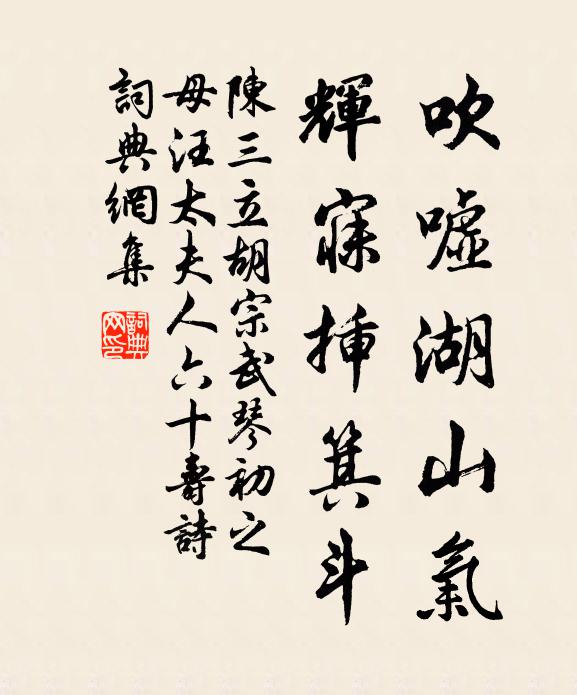 吹嘘湖山氣
輝寐揷箕斗
陳三立胡宗武琴初之
母汪太夫人六十壽詩
詞典網集
詞典网印